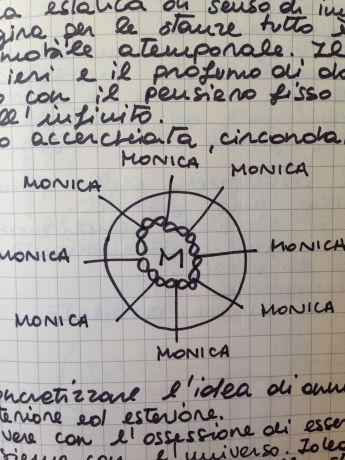 estatica di senso di
per le stanze tutto
mobile atemporale. Il
ieri e il profumo di
con il pensiero fisso
infinito.
accerchiata, circonda
MONICA
MONICA MONICA
MONICA
MONICA M
MONICA MONICA
MONICA
concretizzare l'idea di
ed esteriore.
con l'ossessione di
l'universo.